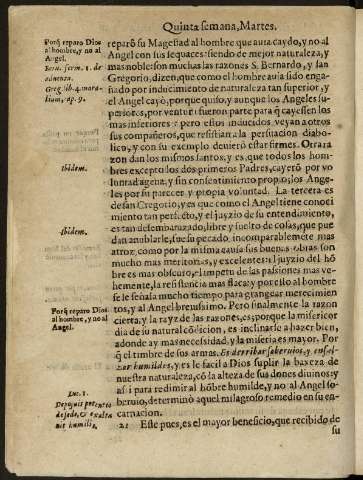 Quinta semana, Martes.
Porq̃ reparo Dios
al hombre, y no al
Angel.
Bern. serm. 1. de
aduentu.
Greg. lib. 4. mora-
lium, cap. 9.
Ibidem.
Ibidem.
Porq̃ reparo Dios
al hombre, y no al
Angel.
Luc. 1.
Deposuit potentes
de sede, & exalta
uit humiles.
reparò su Magestad al hombre que auia caydo, y no al
Angel con sus sequaces: siendo de mejor naturaleza, y
mas noble: son muchas las razones S. Bernardo, y san
Gregorio, dizen, que como el hombre auia sido enga-
ñado por inducimiento de naturaleza tan superior, y
el Angel cayò, porque quiso, y aunque los Angeles su-
periores, por ventura fueron parte para q̃ cayessen los
mas inferiores: pero estos inducidos veyan a otros
sus compañeros, que resistian a la persuacion diabo-
lica, y con su exemplo deuierõ estar firmes. Otra ra-
zon dan los mismos santos, y es, que todos los hom-
bres excepto los dos primeros Padres, cayerõ por vo
luntad agena, y sin consentimiento propio: los Ange-
les por su parecer y propia voluntad. La tercera es
de san Gregorio, y es que como el Angel tiene conoci
miento tan perfecto, y el juyzio de su entendimiento,
es tan desembaraçado, libre y suelto de cosas, que pue
dan anublarle, fue su pecado, incomparablemete mas
atroz, como por la misma causa sus buenas obras son
mucho mas meritorias, y excelentes: el juyzio del hõ
bre es mas obscuro, el impetu de las passiones mas ve-
hemente, la resistencia mas flaca: y por esso al hombre
se le señala mucho tiempo para grangear merecimien
tos, y al Angel breuissimo. Pero finalmente la razon
cierta, y la rayz de las razones, es; porque la misericor
dia de su natural cõdicion, es inclinarse a hazer bien,
adonde ay mas necessidad, y la miseria es mayor. Por
q̃ el timbre de sus armas, Es derribar soberuios, y ensal-
çar humildes, y es le facil a Dios suplir la baxeza de
nuestra naturaleza, cõ la alteza de sus dones diuinos, y
assi para redimir al hõbre humilde, y no al Angel so-
beruio, determinò aquel milagroso remedio en su en-
carnacion.
21 Este pues, es el mayor beneficio, que recibido de
su